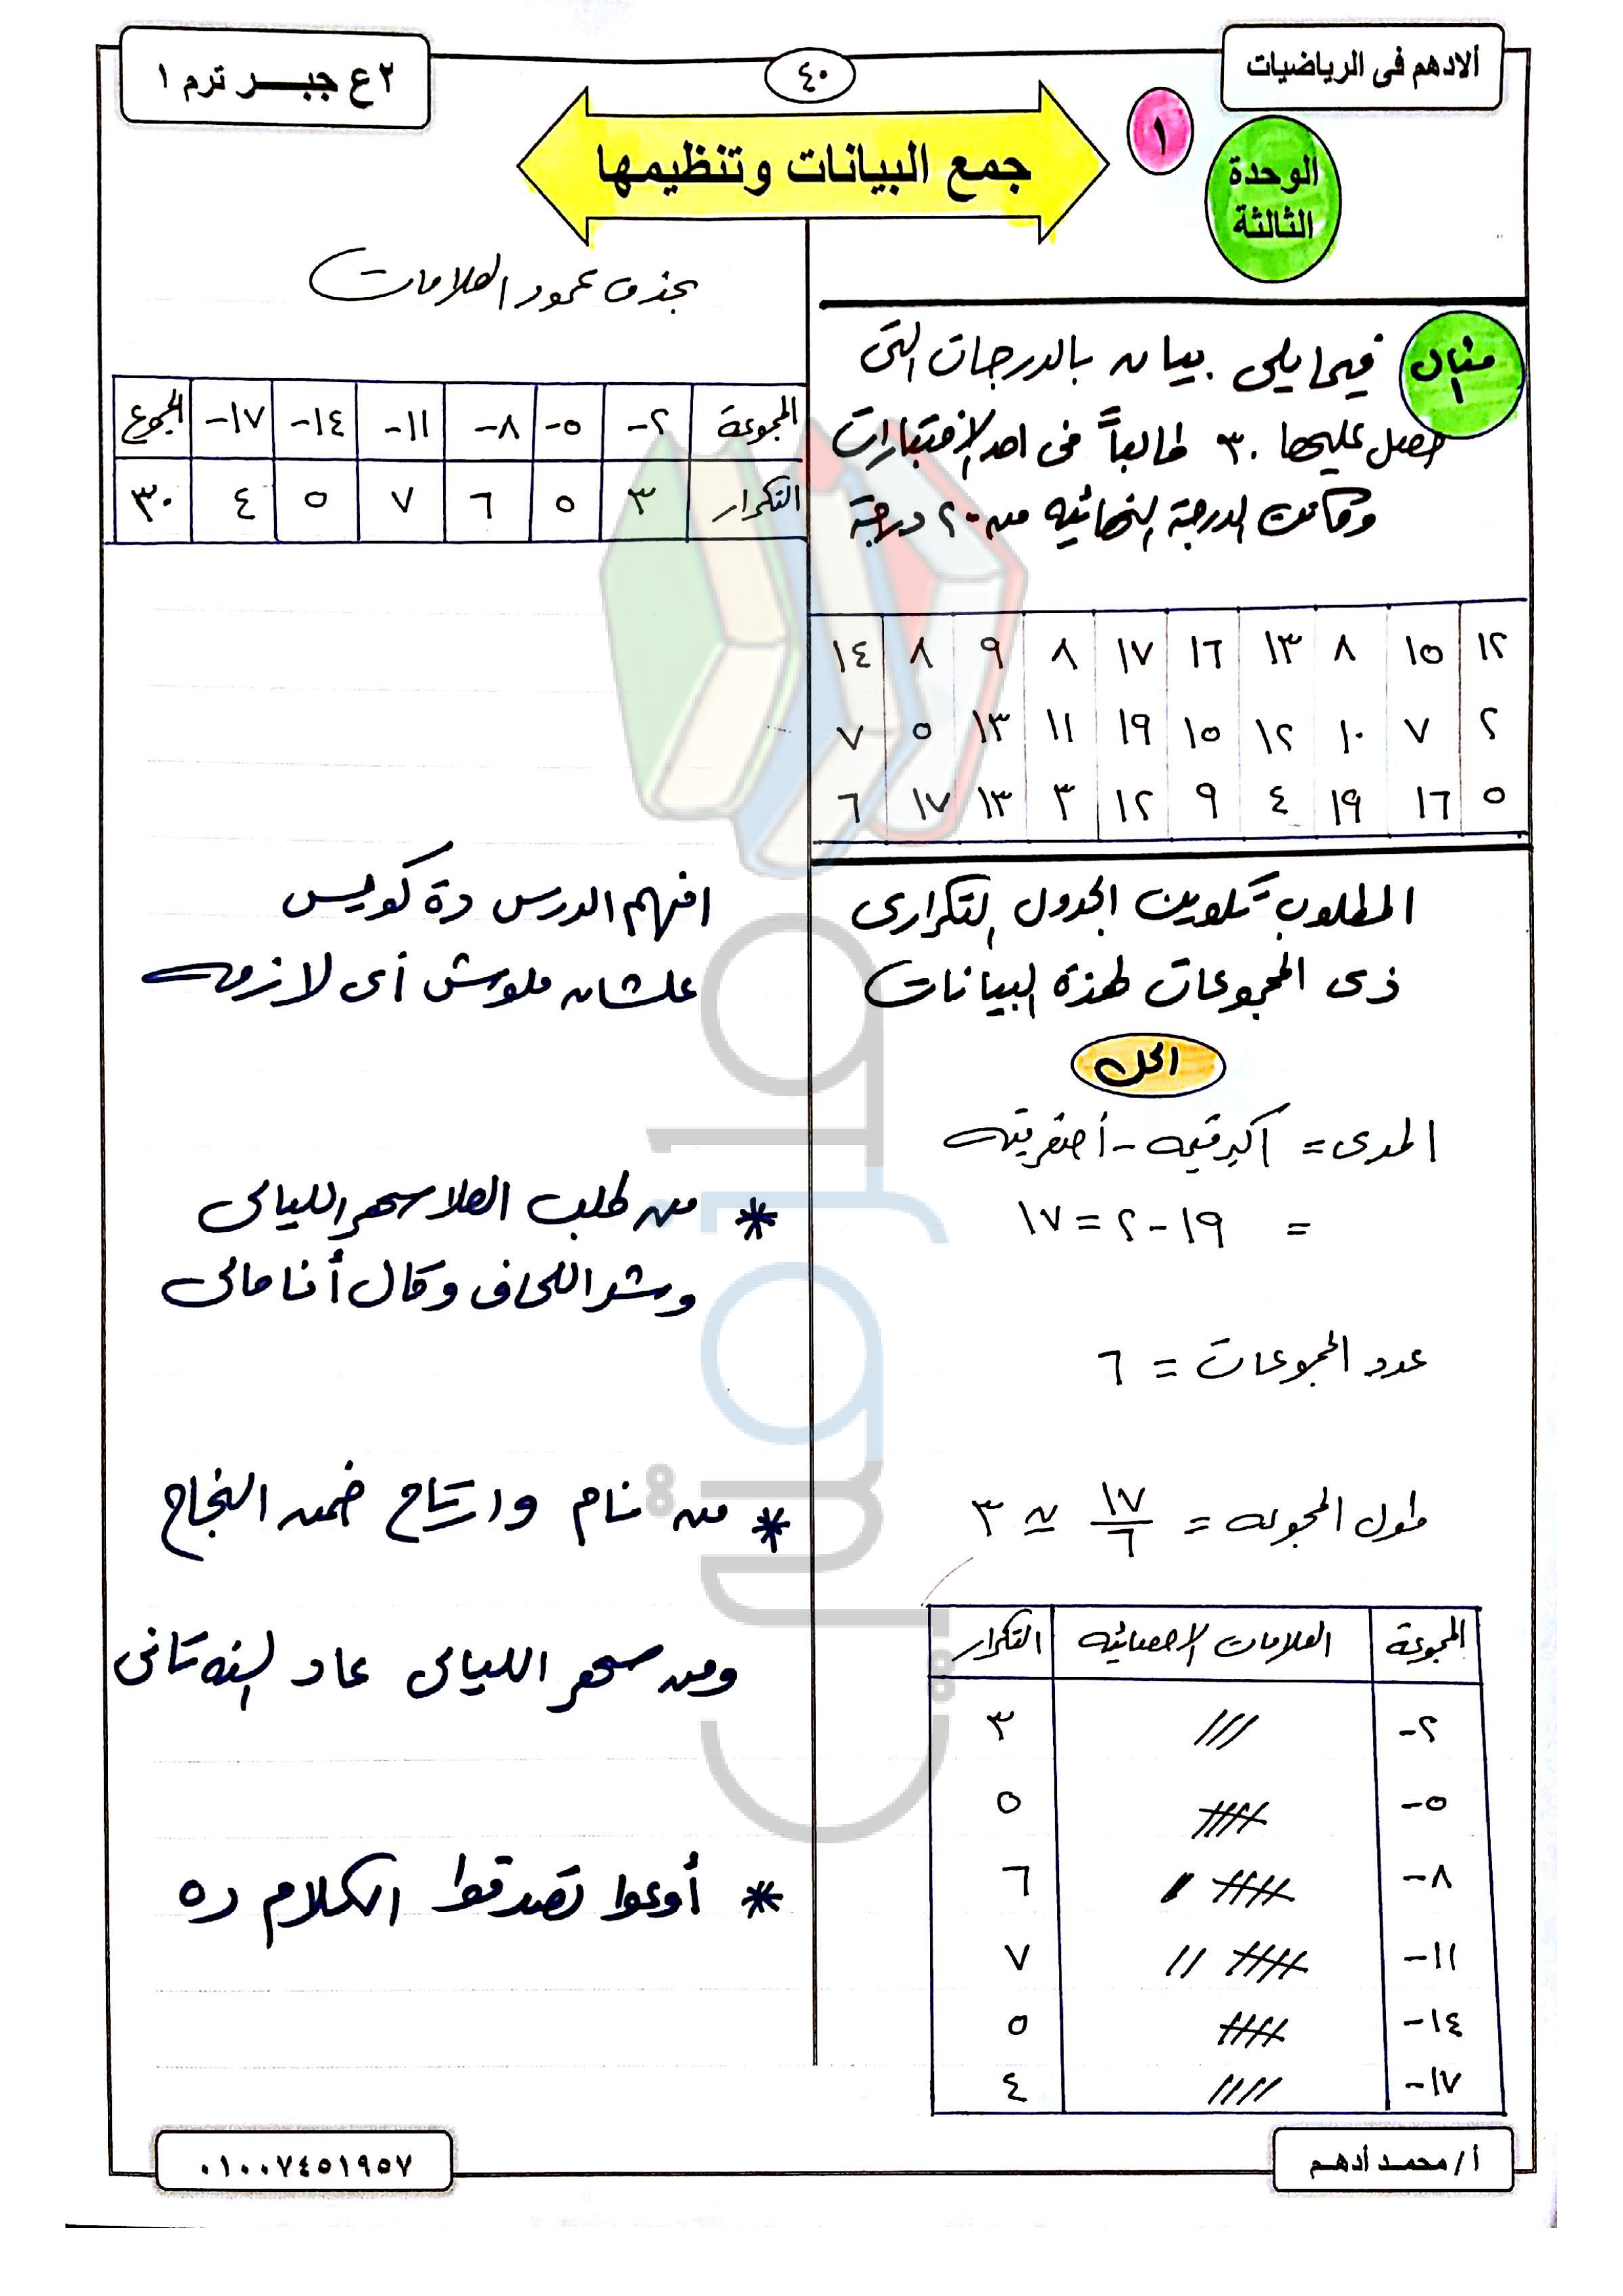 الادهم فى الرياضيات
٤٠
٢ ع جبـــر ترم ١
١
الوحدة
الثالثة
جمع البيانات وتنظيمها
مثال
١
فيما يلى بيان بالدرجات التى
حصل عليها ٣٠ طالباً فى احد الاختبارات
وكانت الدرجة النهائيه من ٢٠ درجة
١٢ ١٥ ٨ ١٣ ١٦ ١٧ ٨ ٩ ٨ ١٤
٢ ٧ ١٠ ١٢ ١٥ ١٩ ١١ ١٣ ٥ ٧
٥ ١٦ ١٩ ٤ ٩ ١٢ ٣ ١٣ ١٧ ٦
المطلوب تكوين الجدول التكرارى
ذى المجموعات لهذة البيانات
الحل
المدى = أكبر قيمه - أصغر قيمه
= ١٩ - ٢ = ١٧
عدد المجموعات = ٦
طول المجموعه = ١٧/٦ ≃ ٣
المجموعة العلامات الاحصائيه التكرار
٢- /// ٣
٥- //// ٥
٨- //// / ٦
١١- //// // ٧
١٤- //// ٥
١٧- //// ٤
بحذف عمود العلامات
المجموعة ٢- ٥- ٨- ١١- ١٤- ١٧- المجموع
التكرار ٣ ٥ ٦ ٧ ٥ ٤ ٣٠
افهم الدرس دة كويس
علشان ملوش أى لازمه
* من طلب العلا سهر الليالى
وشد اللحاف وقال أنا مالى
* من نام وارتاح ضمن النجاح
ومن سهر الليالى عاد السنه تانى
* أوعوا تصدقوا الكلام ده
أ / محمـد أدهـم
٠١٠٠٧٤٥١٩٥٧